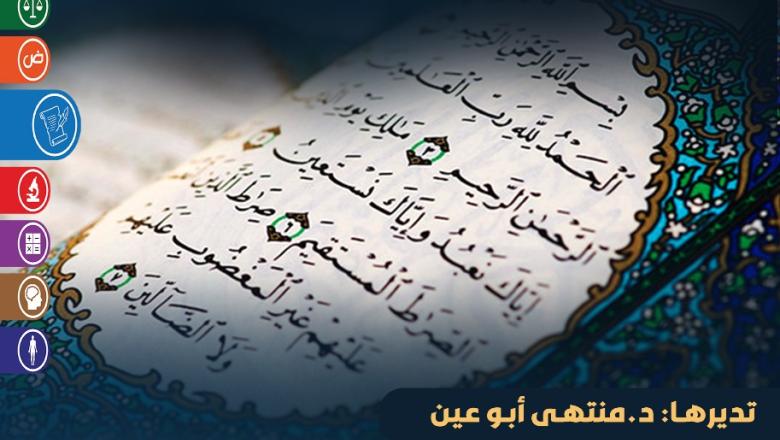 بِسْمِ ٱللَّهِ ٱلرَّحْمَٰنِ ٱلرَّحِيمِ
ٱلْحَمْدُ لِلَّهِ رَبِّ ٱلْعَٰلَمِينَ
ٱلرَّحْمَٰنِ ٱلرَّحِيمِ ٣ مَٰلِكِ يَوْمِ ٱلدِّينِ
إِيَّاكَ نَعْبُدُ وَإِيَّاكَ نَسْتَعِينُ ٥
ٱلصِّرَٰطَ ٱلْمُسْتَقِيمَ ٦ صِرَٰطَ ٱلَّذِينَ
عَلَيْهِمْ غَيْرِ ٱلْمَغْضُوبِ عَلَيْهِمْ
وَلَا ٱلضَّآلِّينَ ٧
ض
تديرها: د.منتهى أبو عين